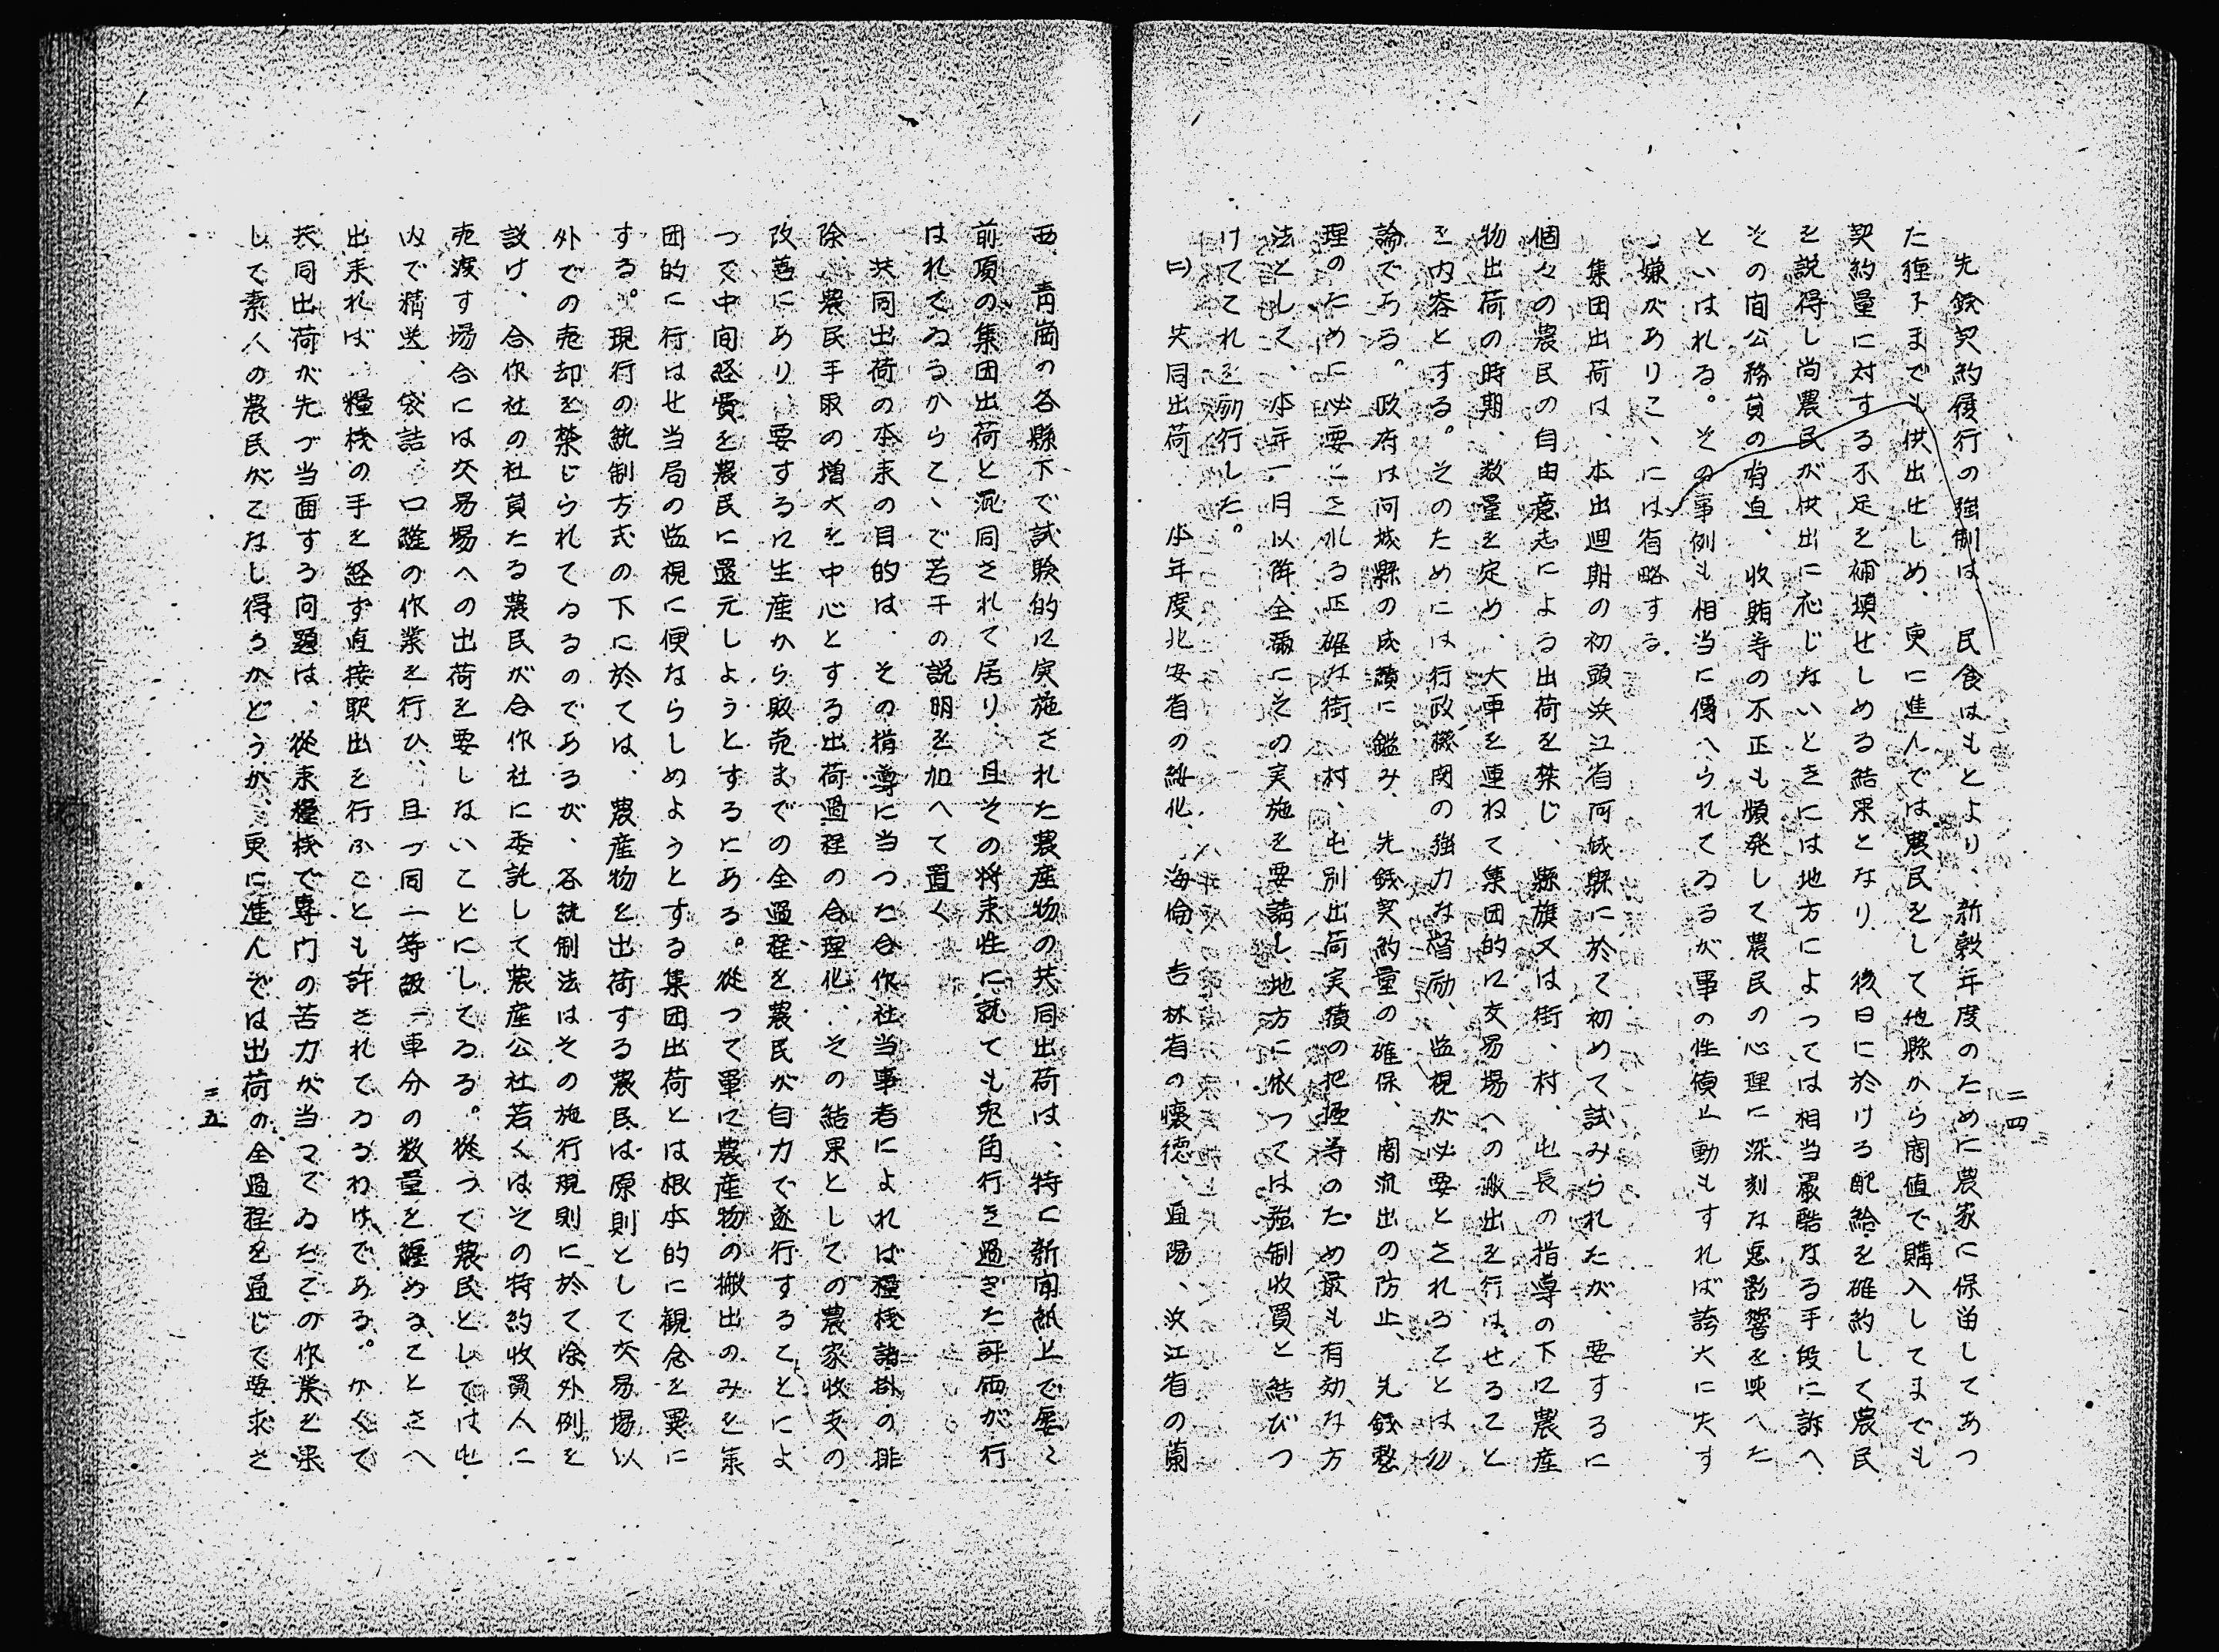 二四
先銭契約履行の強制は、民食はもとより、新穀年度のために農家に保留してあつ
た種子までも供出せしめ、更に進んでは農民をして他縣から闇値で購入してまでも
契約量に対する不足を補填せしめる結果となり、後日に於ける配給を確約して農民
を説得し尚農民が供出に応じないときには地方によつては相当嚴酷なる手段に訴へ
その間公務員の脅迫、收賄等の不正も頻発して農民の心理に深刻な悪影響を與へた
といはれる。その事例も相当に傳へられてゐるが事の性質上動もすれば誇大に失す
る嫌がありこゝには省略する
集団出荷は、本出廻期の初頭浜江省阿城縣に於て初めて試みられたが、要するに
個々の農民の自由意志による出荷を禁じ、縣旗又は街、村、屯長の指導の下に農産
物出荷の時期、数量を定め、大車を連ねて集団的に交易場への搬出を行はせること
を内容とする。そのためには行政機関の強力な督励、監視が必要とされることは勿
論である。政府は阿城縣の成績に鑑み、先銭契約量の確保、闇流出の防止、先銭整
理のために必要とされる正確な街、村、屯別出荷実績の把握等のため最も有効な方
法として、本年一月以降全満にその実施を要請し、地方に依つては強制收買と結びつ
けてこれを励行した。
(二) 共同出荷 本年度北安省の綏化、海倫、吉林省の懐徳、直陽、浜江省の蘭
西、青崗の各縣下で試験的に実施された農産物の共同出荷は、特に新聞紙上で屡々
前項の集団出荷と混同されて居り、且その将来性に就ても兎角行き過ぎた評価が行
はれてゐるからこゝで若干の説明を加へて置く
共同出荷の本来の目的は、その指導に当つた合作社当事者によれば糧棧諸掛の排
除、農民手取の増大を中心とする出荷過程の合理化、その結果としての農家收支の
改善にあり、要するに生産から販売までの全過程を農民が自力で遂行することによ
つて中間経費を農民に還元しようとするにある。從つて單に農産物の搬出のみを集
団的に行はせ当局の監視に便ならしめようとする集団出荷とは根本的に観念を異に
する。現行の統制方式の下に於ては、農産物を出荷する農民は原則として交易場以
外での売却を禁じられてゐるのであるが、各統制法はその施行規則に於て除外例を
設け、合作社の社員たる農民が合作社に委託して農産公社若くはその特約收買人に
売渡す場合には交易場への出荷を要しないことにしてゐる。從つて農民としては屯
内で精選、袋詰、口縫の作業を行ひ、且つ同一等級一車分の数量を纏めることさへ
出来れば、糧棧の手を経ず直接駅出を行ふことも許されてゐるわけである。かくて
共同出荷が先づ当面する問題は、從来糧棧で専門の苦力が当つてゐたこの作業を果
して素人の農民がこなし得るかどうか、更に進んでは出荷の全過程を通じて要求さ
二五